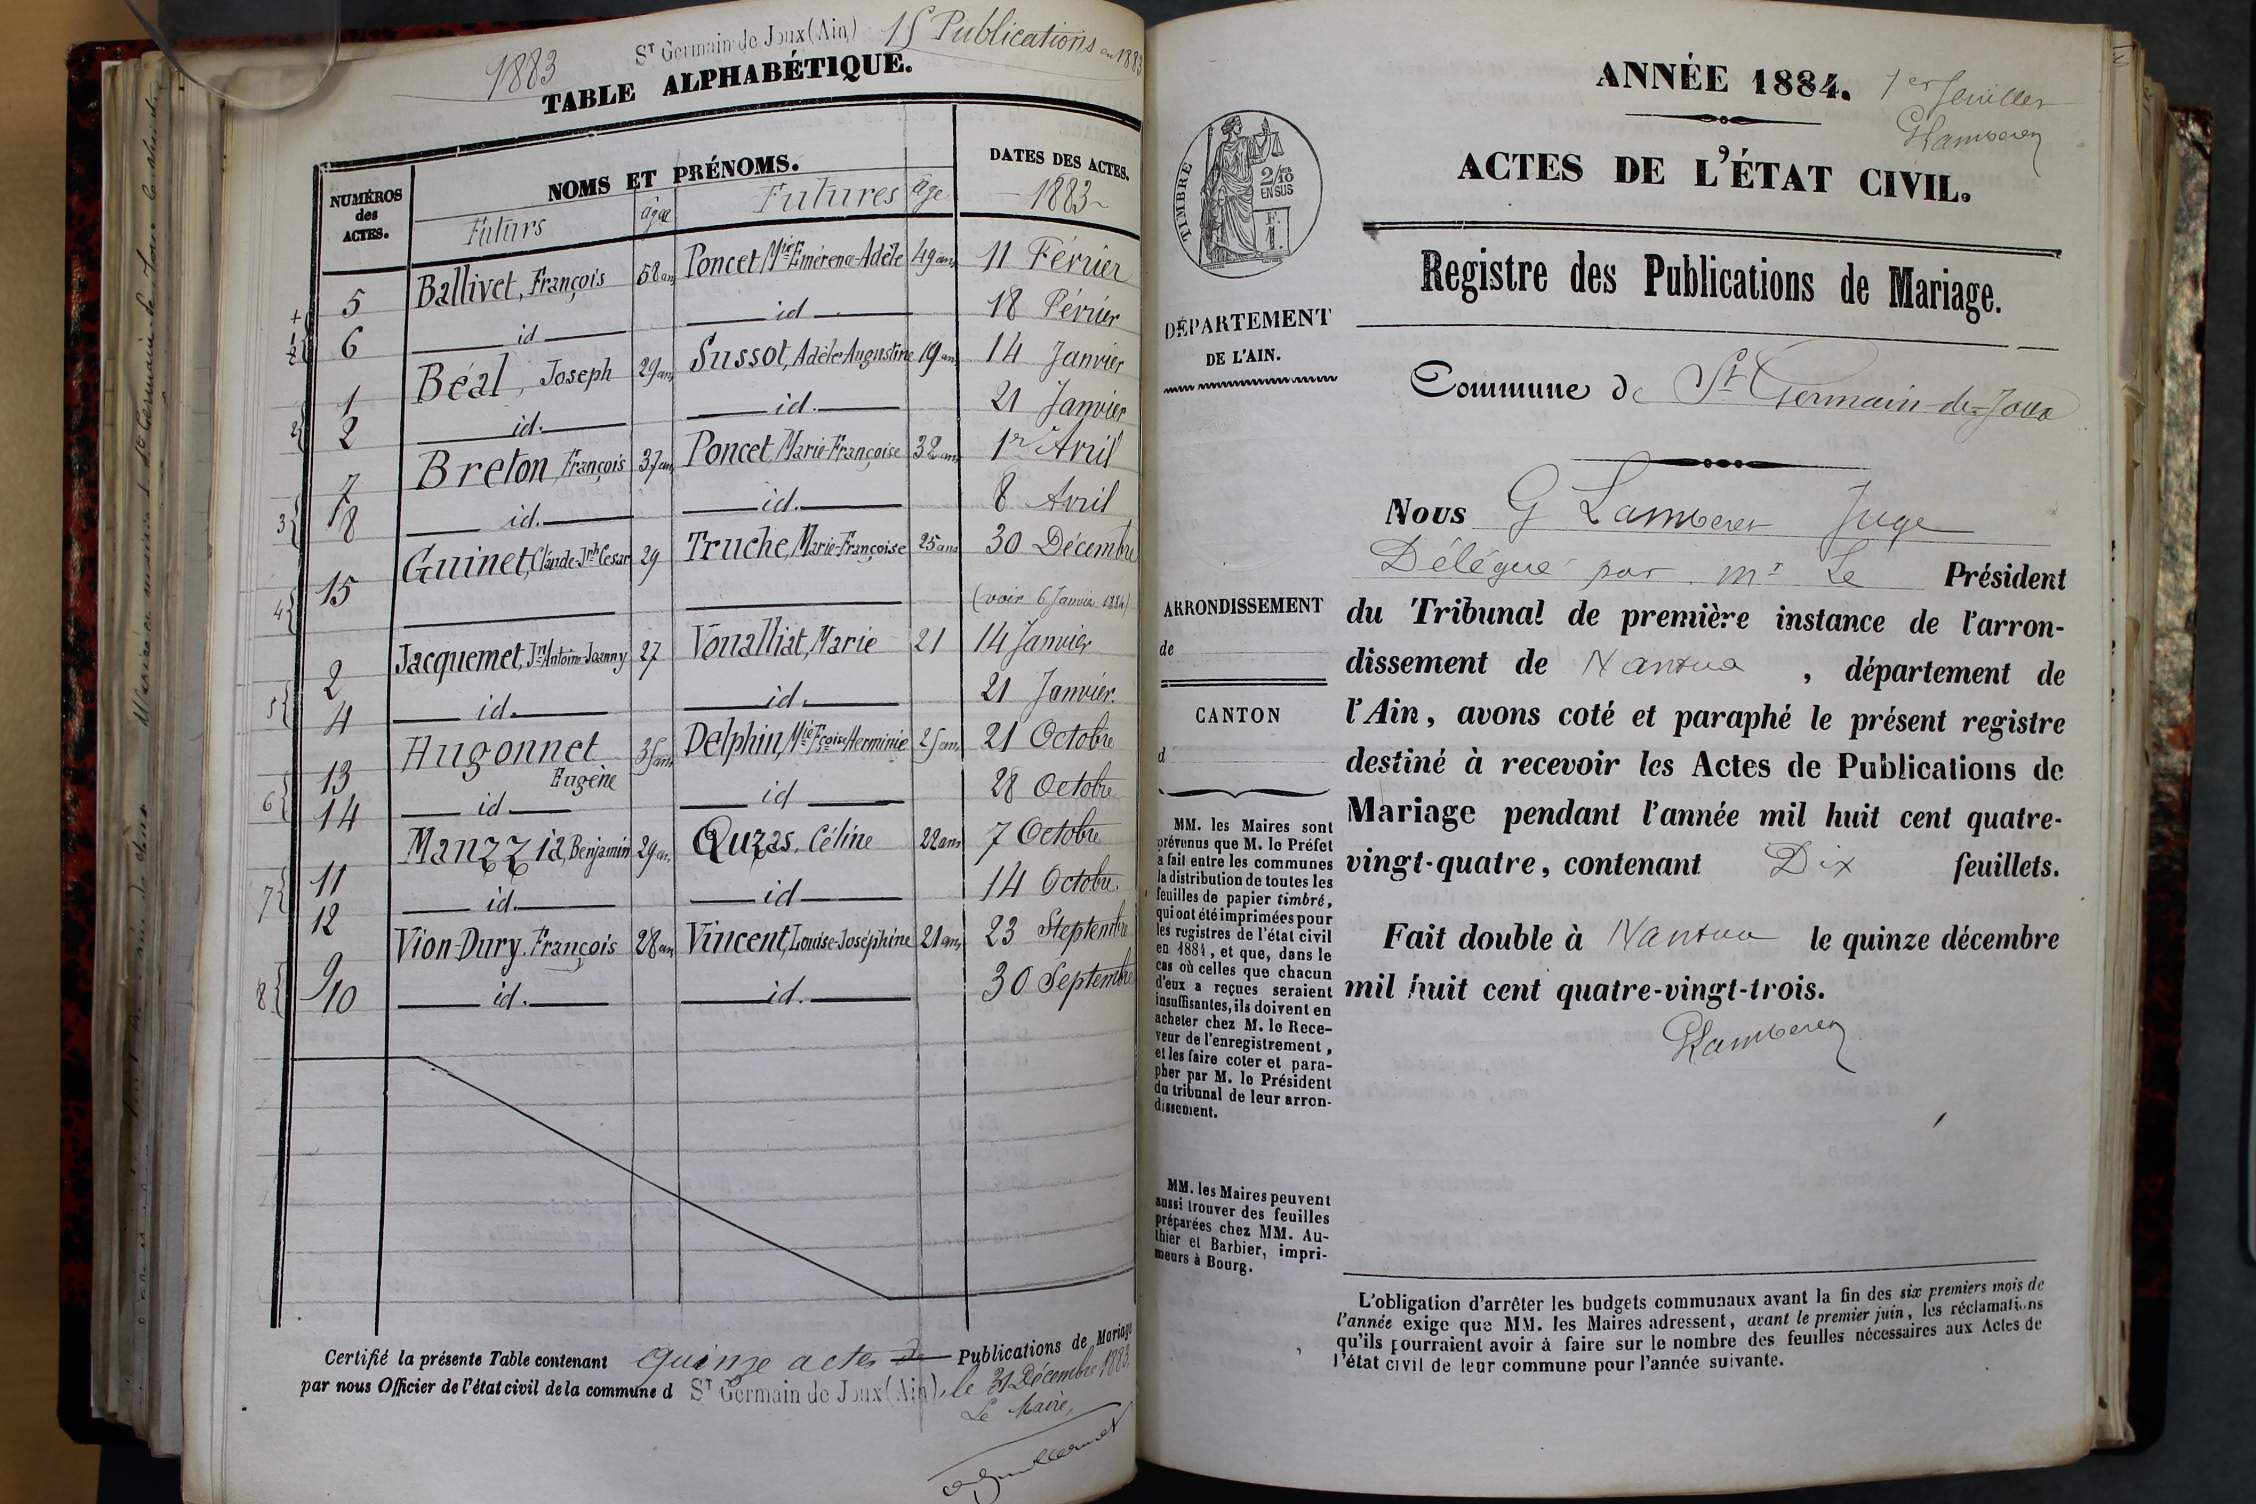 1883 St Germain de Joux (Ain) 15 Publications en 1883
TABLE ALPHABÉTIQUE.
NUMÉROS des ACTES. NOMS ET PRÉNOMS. DATES DES ACTES.
Futurs âge Futures âge 1883
5 Ballivet, François 58 ans Poncet, Mie Emérence-Adèle 49 ans 11 Février
6 id id 18 Février
1 Béal, Joseph 29 ans Sussot, Adèle Augustine 19 ans 14 Janvier
2 id. id. 21 Janvier
7 Breton, François 37 ans Poncet, Marie-Françoise 32 ans 1er Avril
8 id. id. 8 Avril
15 Guinet, Claude-Jph Cesar 29 Truche, Marie-Françoise 25 ans 30 Décembre
(voir 6 Janvier 1884)
2 Jacquemet, Jn Antoine Joanny 27 Voualliat, Marie 21 14 Janvier
4 id. id. 21 Janvier.
13 Hugonnet Eugène 35 ans Delphin, Mie Fçoise Herminie 25 ans 21 Octobre
14 id id 28 Octobre
11 Manzzia, Benjamin 29 an. Quzas, Céline 22 ans 7 Octobre
12 id. id 14 Octobre.
9 Vion-Dury. François 28 ans Vincent, Louise-Joséphine 21 ans 23 Steptembre
10 id. id. 30 Septembre
Certifié la présente Table contenant quinze actes de Publications de Mariage
par nous Officier de l'état civil de la commune d St Germain de Joux (Ain), le 31 Décembre 1883.
Le Maire,
ANNÉE 1884. 1er feuillet
GLamberez
ACTES DE L'ÉTAT CIVIL.
TIMBRE
2/10 EN SUS
Registre des Publications de Mariage.
DÉPARTEMENT
DE L'AIN.
Commune de St Germain-de-Joux
Nous G Lamberet Juge
Délégué par mr Le Président
du Tribunal de première instance de l'arron-
dissement de Nantua, département de
l'Ain, avons coté et paraphé le présent registre
destiné à recevoir les Actes de Publications de
Mariage pendant l'année mil huit cent quatre-
vingt-quatre, contenant Dix feuillets.
Fait double à Nantua le quinze décembre
mil huit cent quatre-vingt-trois.
GLamberez
ARRONDISSEMENT
de
CANTON
d
MM. les Maires sont
prévenus que M. le Préfet
a fait entre les communes
la distribution de toutes les
feuilles de papier timbré,
qui ont été imprimées pour
les registres de l'état civil
en 1884, et que, dans le
cas où celles que chacun
d'eux a reçues seraient
insuffisantes, ils doivent en
acheter chez M. le Rece-
veur de l'enregistrement,
et les faire coter et para-
pher par M. le Président
du tribunal de leur arron-
dissement.
MM. les Maires peuvent
aussi trouver des feuilles
préparées chez MM. Au-
thier et Barbier, impri-
meurs à Bourg.
L'obligation d'arrêter les budgets communaux avant la fin des six premiers mois de
l'année exige que MM. les Maires adressent, avant le premier juin, les réclamations
qu'ils pourraient avoir à faire sur le nombre des feuilles nécessaires aux Actes de
l'état civil de leur commune pour l'année suivante.